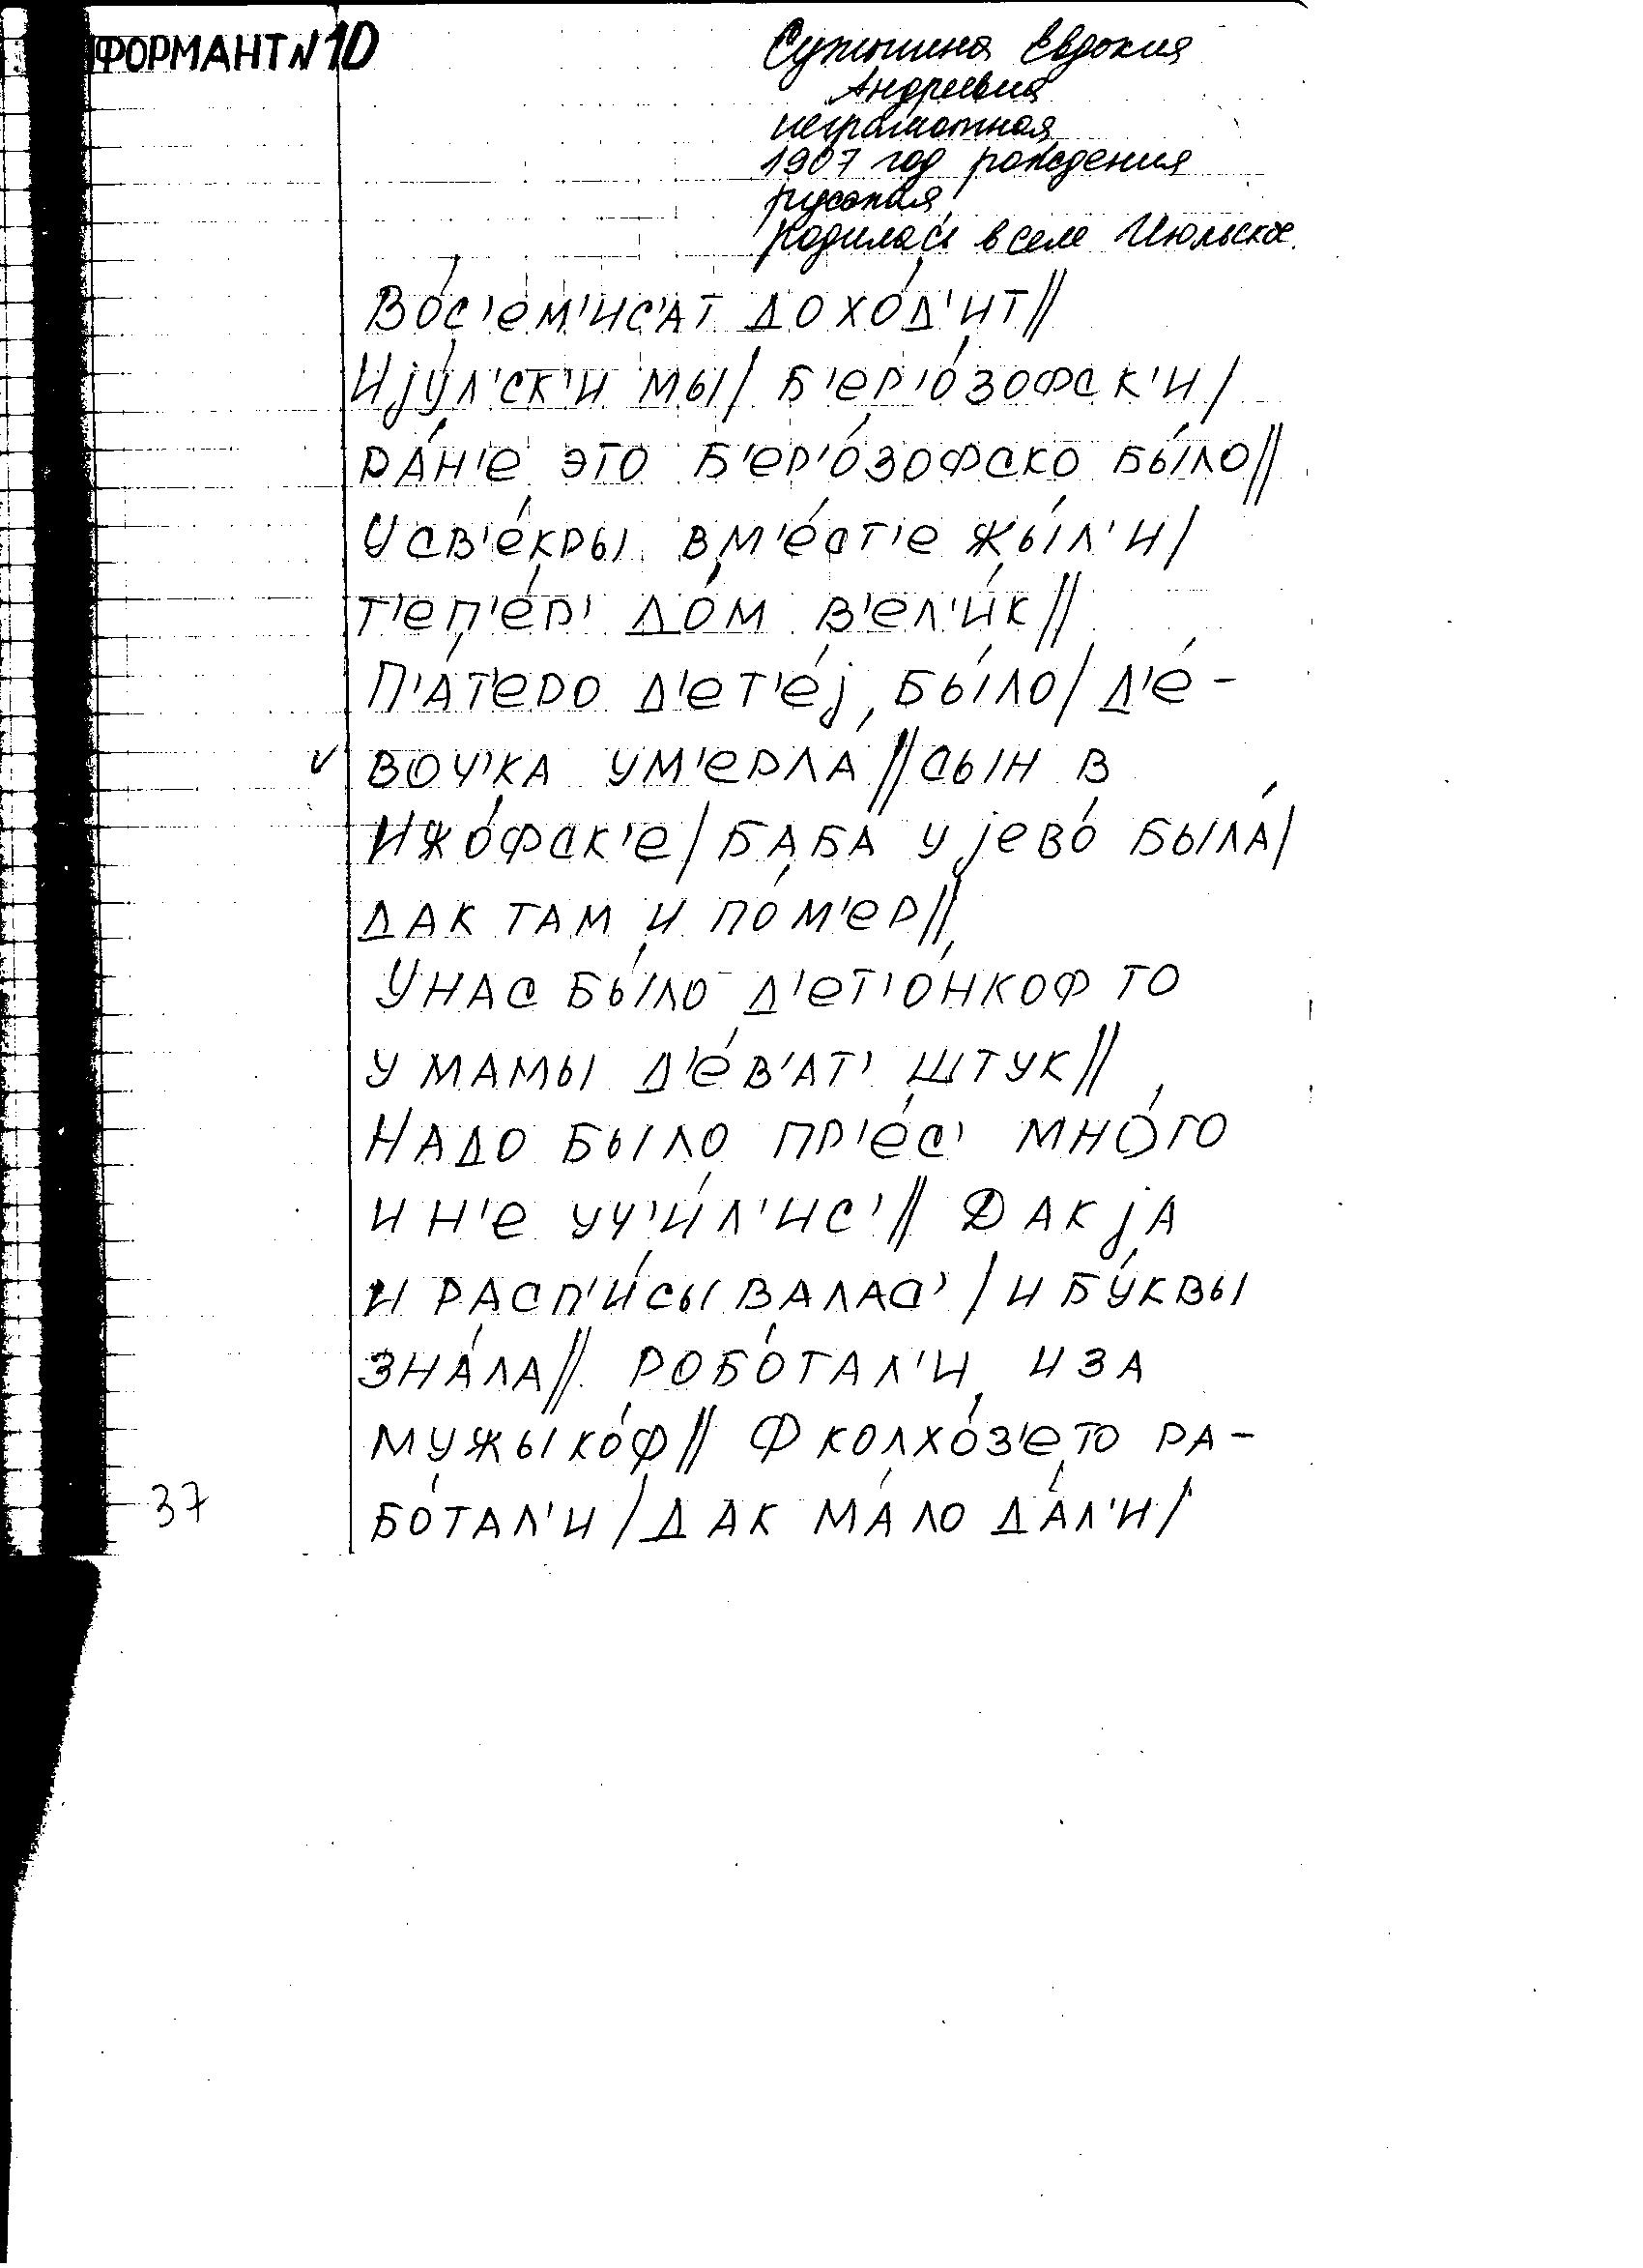 ФОРМАНТ №10
Евдокия
Андреевна
неграмотная
1907 год рождения
русская
Родилась в селе Июльское.
Во́с'ем'ис'ат дохо́д'ит//
Ијýл'ск'и мы/ б'ер'о́зофск'и/
ра́н'е это б'ер'о́зофско бы́ло//
У св'е́кры вм'е́ст'е жы́л'и/
т'еп'е́р' до́м в'ел'и́к//
П'а́т'еро д'ет'е́ј бы́ло/ д'е́-
воч'ка ум'ерла́// сын в
Ижо́фск'е/ баба у јево́ была́/
дак там и по́м'ер//
У нас бы́ло д'ет'о́нкоф то
у мамы д'е́в'ат' штук//
Надо было пр'е́с' мно́го
и н'е уч'и́л'ис'// Дак јa
и расп'и́сывалас'/ и бу́квы
зна́ла// робо́тал'и и за
мужыко́ф// Ф колхо́з'е то ра-
бо́тал'и/ дак ма́ло да́л'и/
37